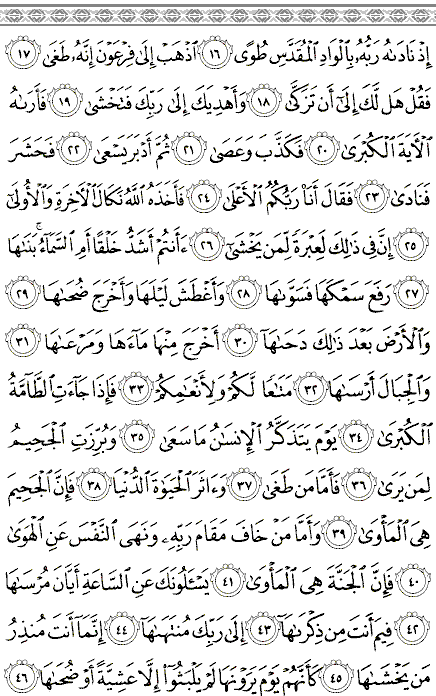 إِذْ نَادَىٰهُ رَبُّهُۥ بِٱلْوَادِ ٱلْمُقَدَّسِ طُوًى ١٦ ٱذْهَبْ إِلَىٰ فِرْعَوْنَ إِنَّهُۥ طَغَىٰ ١٧
فَقُلْ هَل لَّكَ إِلَىٰٓ أَن تَزَكَّىٰ ١٨ وَأَهْدِيَكَ إِلَىٰ رَبِّكَ فَتَخْشَىٰ ١٩ فَأَرَىٰهُ
ٱلْءَايَةَ ٱلْكُبْرَىٰ ٢٠ فَكَذَّبَ وَعَصَىٰ ٢١ ثُمَّ أَدْبَرَ يَسْعَىٰ ٢٢ فَحَشَرَ
فَنَادَىٰ ٢٣ فَقَالَ أَنَا۠ رَبُّكُمُ ٱلْأَعْلَىٰ ٢٤ فَأَخَذَهُ ٱللَّهُ نَكَالَ ٱلْءَاخِرَةِ وَٱلْأُولَىٰٓ
٢٥ إِنَّ فِى ذَٰلِكَ لَعِبْرَةً لِّمَن يَخْشَىٰٓ ٢٦ ءَأَنتُمْ أَشَدُّ خَلْقًا أَمِ ٱلسَّمَآءُ ۚ بَنَىٰهَا
٢٧ رَفَعَ سَمْكَهَا فَسَوَّىٰهَا ٢٨ وَأَغْطَشَ لَيْلَهَا وَأَخْرَجَ ضُحَىٰهَا ٢٩
وَٱلْأَرْضَ بَعْدَ ذَٰلِكَ دَحَىٰهَآ ٣٠ أَخْرَجَ مِنْهَا مَآءَهَا وَمَرْعَىٰهَا ٣١
وَٱلْجِبَالَ أَرْسَىٰهَا ٣٢ مَتَٰعًا لَّكُمْ وَلِأَنْعَٰمِكُمْ ٣٣ فَإِذَا جَآءَتِ ٱلطَّآمَّةُ
ٱلْكُبْرَىٰ ٣٤ يَوْمَ يَتَذَكَّرُ ٱلْإِنسَٰنُ مَا سَعَىٰ ٣٥ وَبُرِّزَتِ ٱلْجَحِيمُ
لِمَن يَرَىٰ ٣٦ فَأَمَّا مَن طَغَىٰ ٣٧ وَءَاثَرَ ٱلْحَيَوٰةَ ٱلدُّنْيَا ٣٨ فَإِنَّ ٱلْجَحِيمَ
هِىَ ٱلْمَأْوَىٰ ٣٩ وَأَمَّا مَنْ خَافَ مَقَامَ رَبِّهِۦ وَنَهَى ٱلنَّفْسَ عَنِ ٱلْهَوَىٰ
٤٠ فَإِنَّ ٱلْجَنَّةَ هِىَ ٱلْمَأْوَىٰ ٤١ يَسْـَٔلُونَكَ عَنِ ٱلسَّاعَةِ أَيَّانَ مُرْسَىٰهَا
٤٢ فِيمَ أَنتَ مِن ذِكْرَىٰهَآ ٤٣ إِلَىٰ رَبِّكَ مُنتَهَىٰهَآ ٤٤ إِنَّمَآ أَنتَ مُنذِرُ
مَن يَخْشَىٰهَا ٤٥ كَأَنَّهُمْ يَوْمَ يَرَوْنَهَا لَمْ يَلْبَثُوٓا۟ إِلَّا عَشِيَّةً أَوْ ضُحَىٰهَا ٤٦